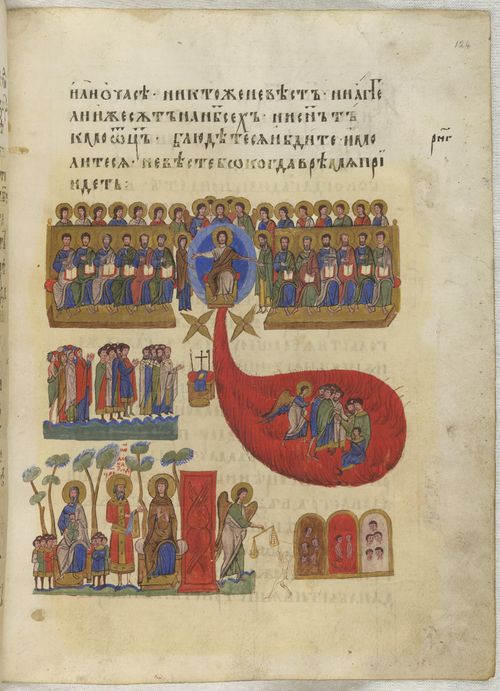 124
или о часѣ · никтоже не вѣстъ · ни агг҃е
ли иже сѫтъ на нб҃сехъ · ни сн҃ъ тъ
кмо ѡц҃ъ · блюдѣтесѧ и бдите · и мо
литесѧ · не вѣсте бо когда врѣмѧ прі
идетъ :